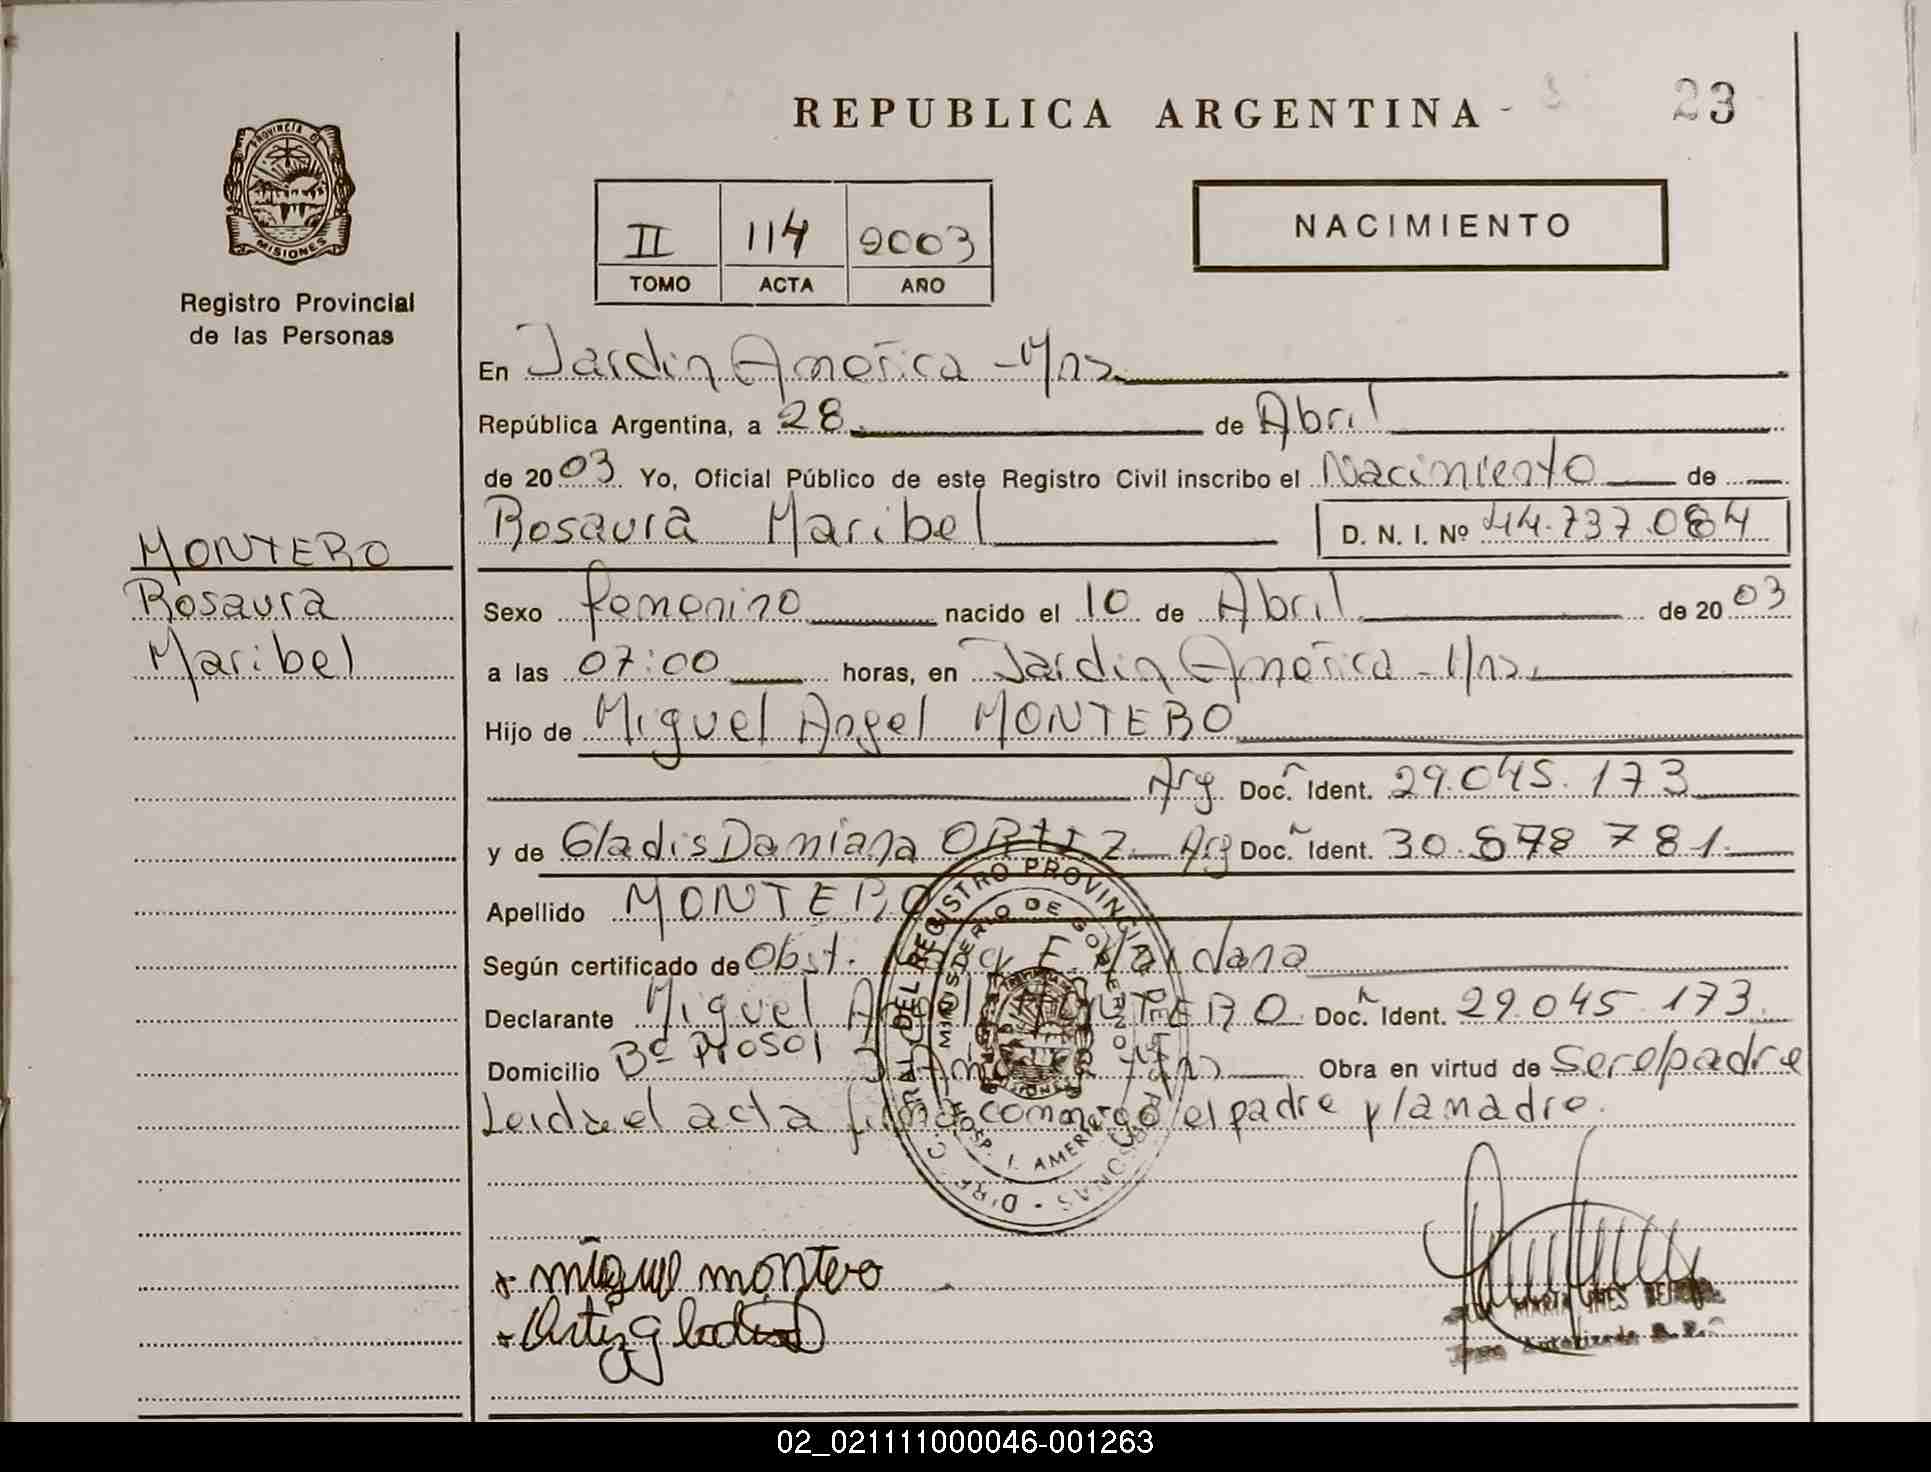 REPUBLICA ARGENTINA
23
PROVINCIA D
MISIONES
Registro Provincial
de las Personas
II 114 2003
TOMO ACTA AÑO
NACIMIENTO
En Jardin America - Mns
República Argentina, a 28 de Abril
de 2003 Yo, Oficial Público de este Registro Civil inscribo el Nacimiento de
Rosaura Maribel D. N. I. Nº 44.737.084
MONTERO
Rosaura
Maribel
Sexo femenino nacido el 10 de Abril de 2003
a las 07:00 horas, en Jardin America - Mns.
Hijo de Miguel Angel MONTERO
Arg Doc. Ident. 29.045.173
y de Gladis Damiana ORTIZ Arg Doc. Ident. 30.878 781
Apellido MONTERO
Según certificado de Obst. E. Maidana
Declarante Miguel Angel MONTERO Doc. Ident. 29.045.173
Domicilio Bº Prosol J. America Mns Obra en virtud de Ser el padre
Leida el acta firma conmigo el padre y la madre.
DIREC. GRAL DEL REGISTRO PROVINCIAL DE LAS PERSONAS
MINISTERIO DE GOBIERNO
HOSP. J. AMERICA
x miguel montero
Ortiz gladis
MARIA INES
Autorizada R. P.
02_021111000046-001263